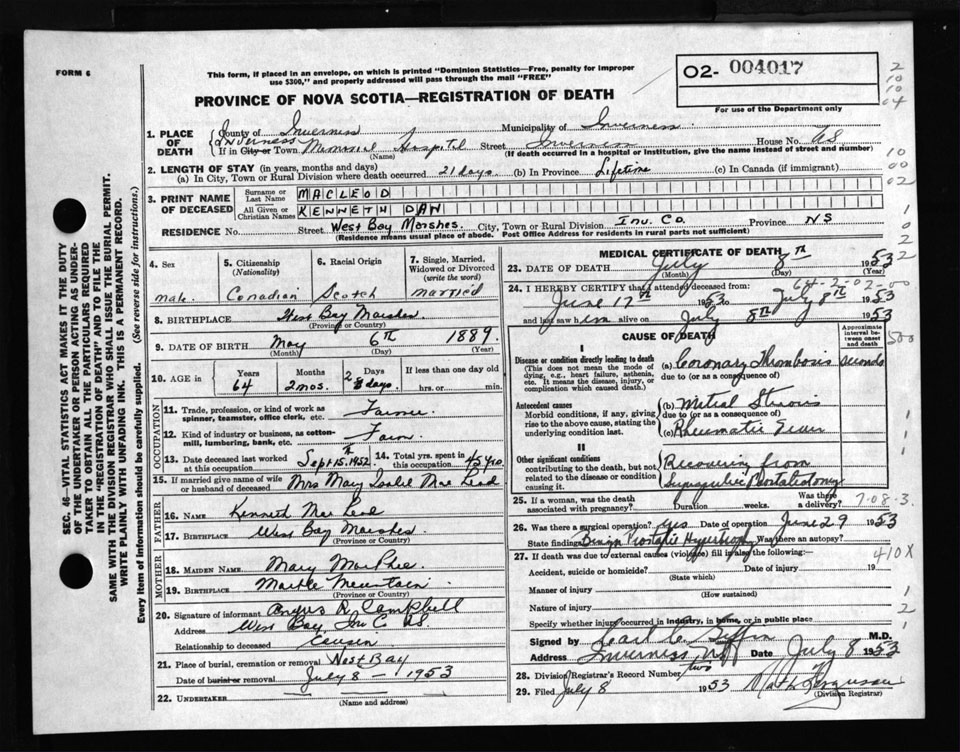 FORM 6
This form, if placed in an envelope, on which is printed "Dominion Statistics—Free, penalty for improper
use $300," and properly addressed will pass through the mail "FREE"
O2- 004017
For use of the Department only
PROVINCE OF NOVA SCOTIA—REGISTRATION OF DEATH
2
10
10
04
10
00
02
1
0
2
2
1. PLACE OF DEATH
County of Inverness Municipality of Inverness
If in City or Town Inverness Memorial Hospital Street Inverness House No. NS
(Name) (If death occurred in a hospital or Institution, give the name instead of street and number)
2. LENGTH OF STAY (in years, months and days)
(a) In City, Town or Rural Division where death occurred 21 days. (b) In Province Lifetime (c) In Canada (if immigrant)
3. PRINT NAME OF DECEASED
Surname or Last Name MACLEOD
All Given or Christian Names KENNETH DAN
RESIDENCE No. Street West Bay Marshes. City, Town or Rural Division Inv. Co. Province NS
(Residence means usual place of abode. Post Office Address for residents in rural parts not sufficient)
4. Sex
male
5. Citizenship
(Nationality)
Canadian
6. Racial Origin
Scotch
7. Single, Married, Widowed or Divorced
(write the word)
married
8. BIRTHPLACE West Bay Marshes
(Province or Country)
9. DATE OF BIRTH May 6th 1889
(Month) (Day) (Year)
10. AGE in
Years Months Days If less than one day
64 2 mos. 2 days. hrs. or min.
OCCUPATION
11. Trade, profession, or kind of work as spinner, teamster, office clerk, etc. Farmer
12. Kind of industry or business, as cotton-mill, lumbering, bank, etc. Farm
13. Date deceased last worked at this occupation Sept 15th 1952
14. Total yrs. spent in this occupation 45 yrs.
15. If married give name of wife or husband of deceased Mrs Mary Isabel Mac Leod
FATHER
16. NAME Kenneth Mac Leod
17. BIRTHPLACE West Bay Marshes
(Province or Country)
MOTHER
18. MAIDEN NAME Mary MacPhee
19. BIRTHPLACE Marble Mountain
(Province or Country)
20. Signature of informant Angus R. Campbell
Address West Bay, Inv C NS.
Relationship to deceased Cousin
21. Place of burial, cremation or removal West Bay
Date of burial or removal July 8 - 1953
22. UNDERTAKER
(Name and address)
MEDICAL CERTIFICATE OF DEATH
23. DATE OF DEATH July 8th 1953
(Month) (Day) (Year)
24. I HEREBY CERTIFY that I attended deceased from:
64-2-02-00
June 17th 1953 to July 8th 1953
and last saw him alive on July 8th 1953
CAUSE OF DEATH
Approximate interval between onset and death
I
Disease or condition directly leading to death
(This does not mean the mode of dying, e.g., heart failure, asthenia, etc. It means the disease, injury, or complication which caused death.)
(a) Coronary Thrombosis Seconds
due to (or as a consequence of)
Antecedent causes
Morbid conditions, if any, giving rise to the above cause, stating the underlying condition last.
(b) Mitral Stenosis
due to (or as a consequence of)
(c) Rheumatic Fever
II
Other significant conditions
contributing to the death, but not related to the disease or condition causing it.
Recovering from
Suprapubic Prostatectomy
500
1
1
1
25. If a woman, was the death associated with pregnancy? Duration weeks. Was there a delivery?
7-08-3
26. Was there a surgical operation? yes Date of operation June 29 1953
State findings Benign Prostatic Hypertrophy Was there an autopsy?
27. If death was due to external causes (violence) fill in also the following:
410X
Accident, suicide or homicide? Date of injury 19
(State which)
Manner of injury
(How sustained)
1
Nature of injury
2
Specify whether injury occurred in industry, in home, or in public place
Signed by M.D.
Address Inverness NS Date July 8 1953
28. Division Registrar's Record Number two
29. Filed July 8 1953
(Division Registrar)
SEC. 46—VITAL STATISTICS ACT MAKES IT THE DUTY
OF THE UNDERTAKER OR PERSON ACTING AS UNDER-
TAKER TO OBTAIN ALL THE PARTICULARS REQUIRED
IN THE "REGISTRATION OF DEATH" AND TO FILE THE
SAME WITH THE DIVISION REGISTRAR WHO SHALL ISSUE THE BURIAL PERMIT.
WRITE PLAINLY WITH UNFADING INK. THIS IS A PERMANENT RECORD.
Every item of information should be carefully supplied. (See reverse side for instructions.)